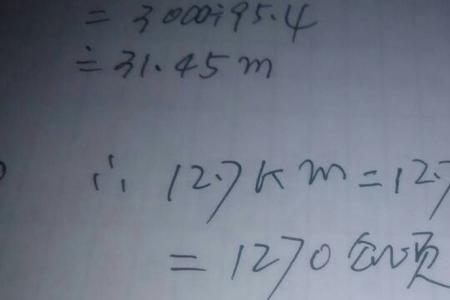 = 3000÷95.4
≐ 31.45m
∵ 12.7km=12.7
= 1270